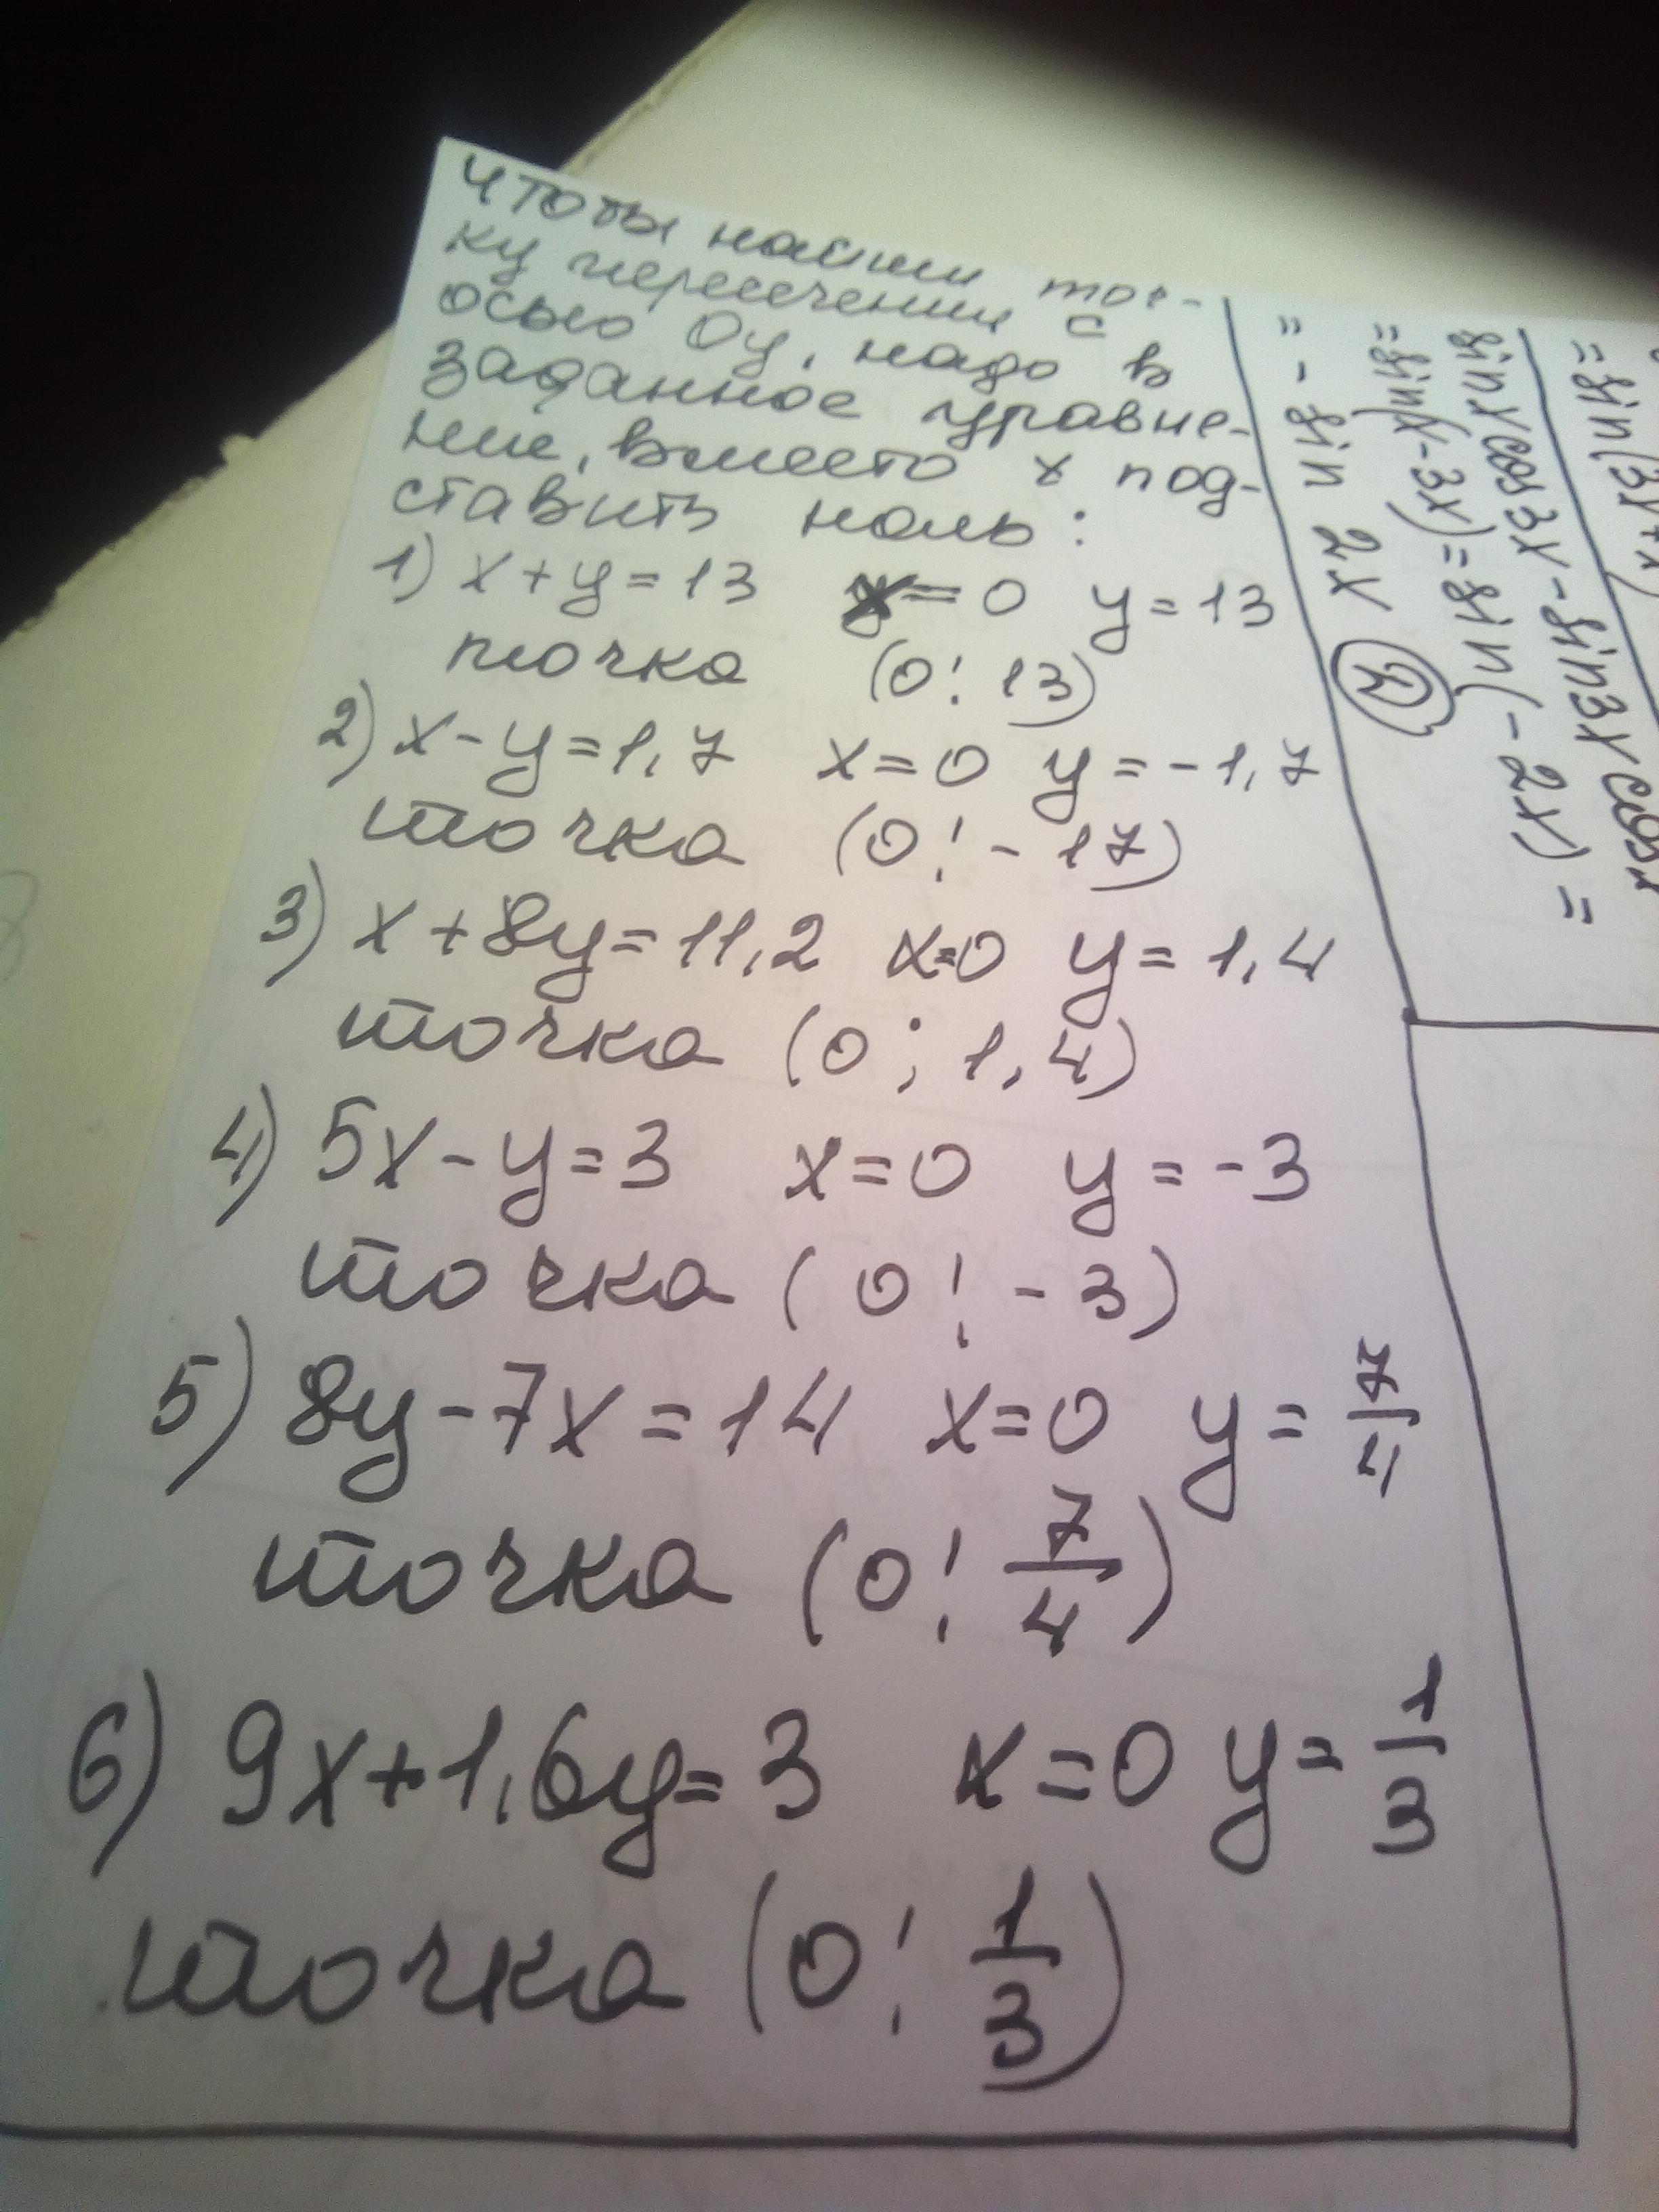 чтобы найти точ-
ку пересечения с
осью Oy, надо в
заданное уравне-
ние, вместо x под-
ставить ноль:
1) x+y=13 x=0 y=13
точка (0; 13)
2) x-y=1,7 x=0 y=-1,7
точка (0; -17)
3) x+8y=11,2 x=0 y=1,4
точка (0; 1,4)
4) 5x-y=3 x=0 y=-3
точка (0; -3)
5) 8y-7x=14 x=0 y=7/4
точка (0; 7/4)
6) 9x+1,6y=3 x=0 y=1/3
точка (0; 1/3)
=sin(3x+x)
sinx cos3x-sin3x cosx
=sin(x-3x)=sin(-2x)=
=-sin 2x